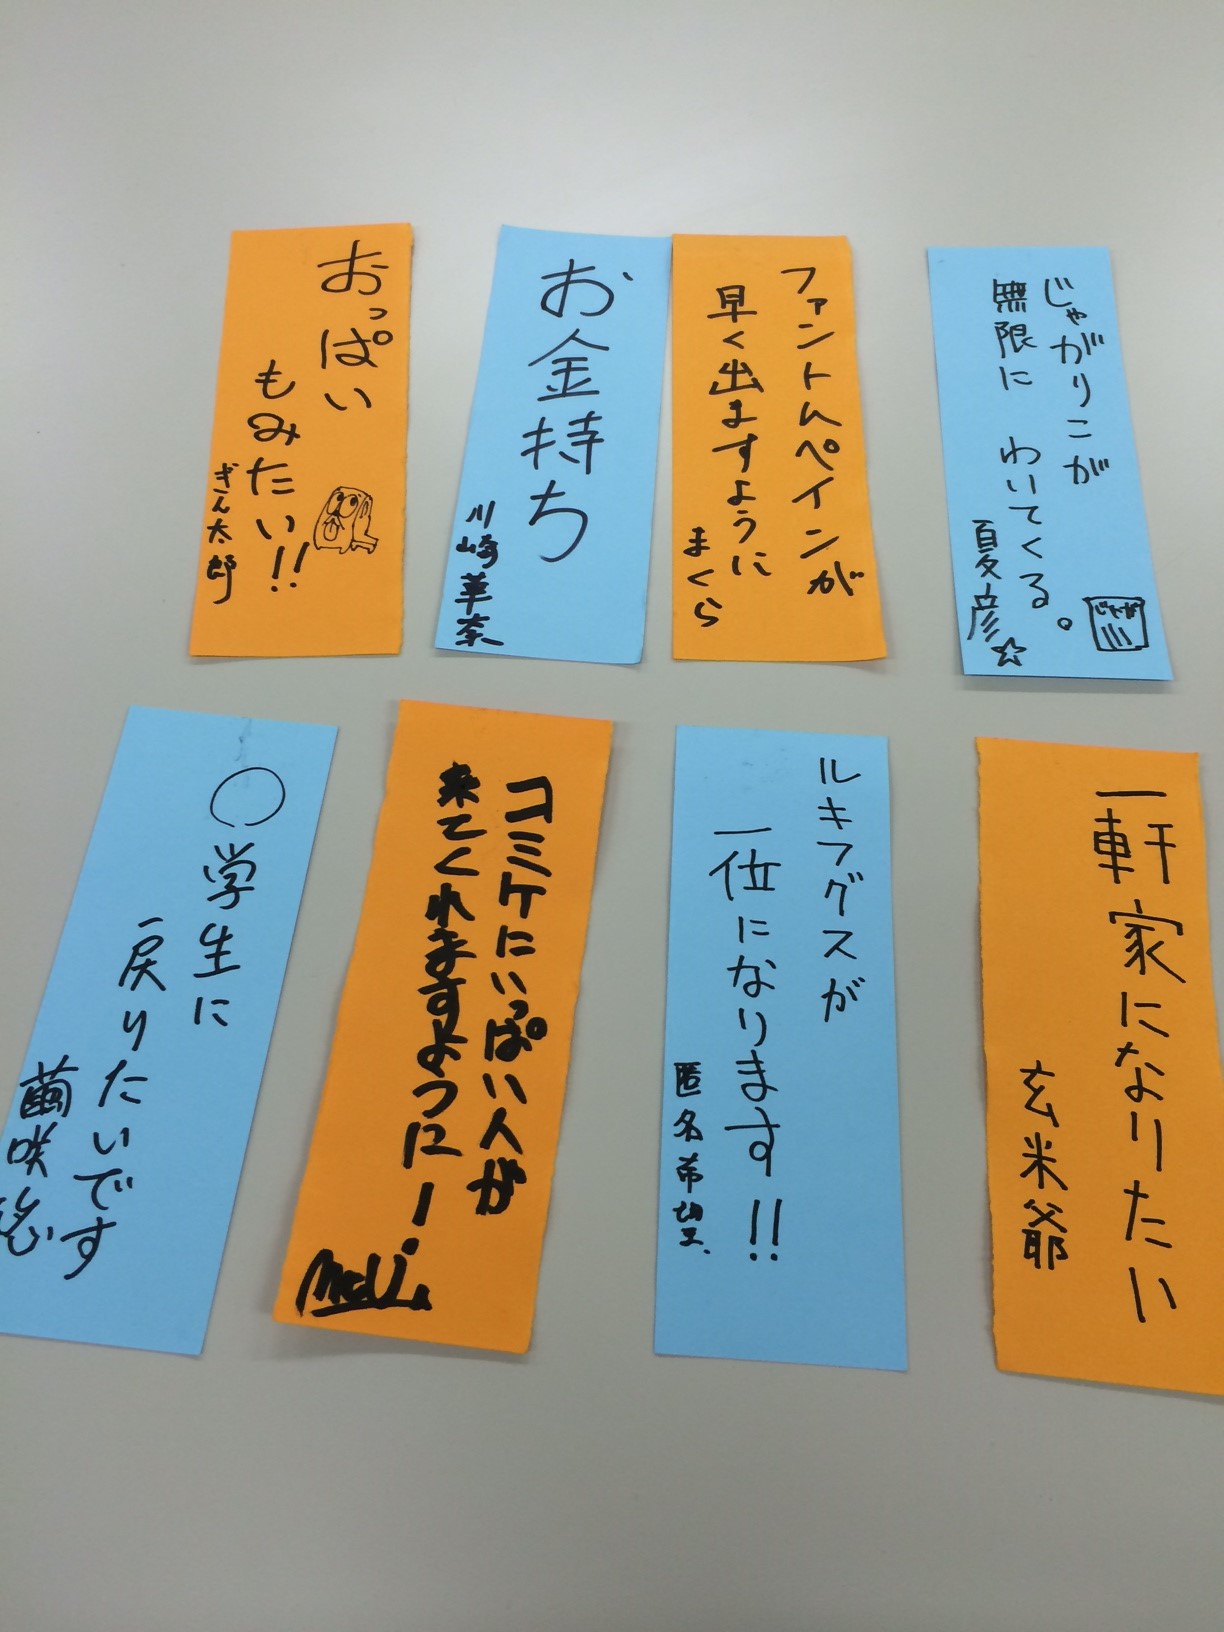 おっぱい
もみたい!!
ぎん太郎
お金持ち
川崎華奈
ファントムペインが
早く出ますように
まくら
じゃがりこが
無限に わいてくる。
夏彦☆
じゃが
○学生に
戻りたいです
繭咲悠
コミケにいっぱい人が
来てくれますように!
ルキフグスが
一位になります!!
匿名希望、
一軒家になりたい
玄米爺